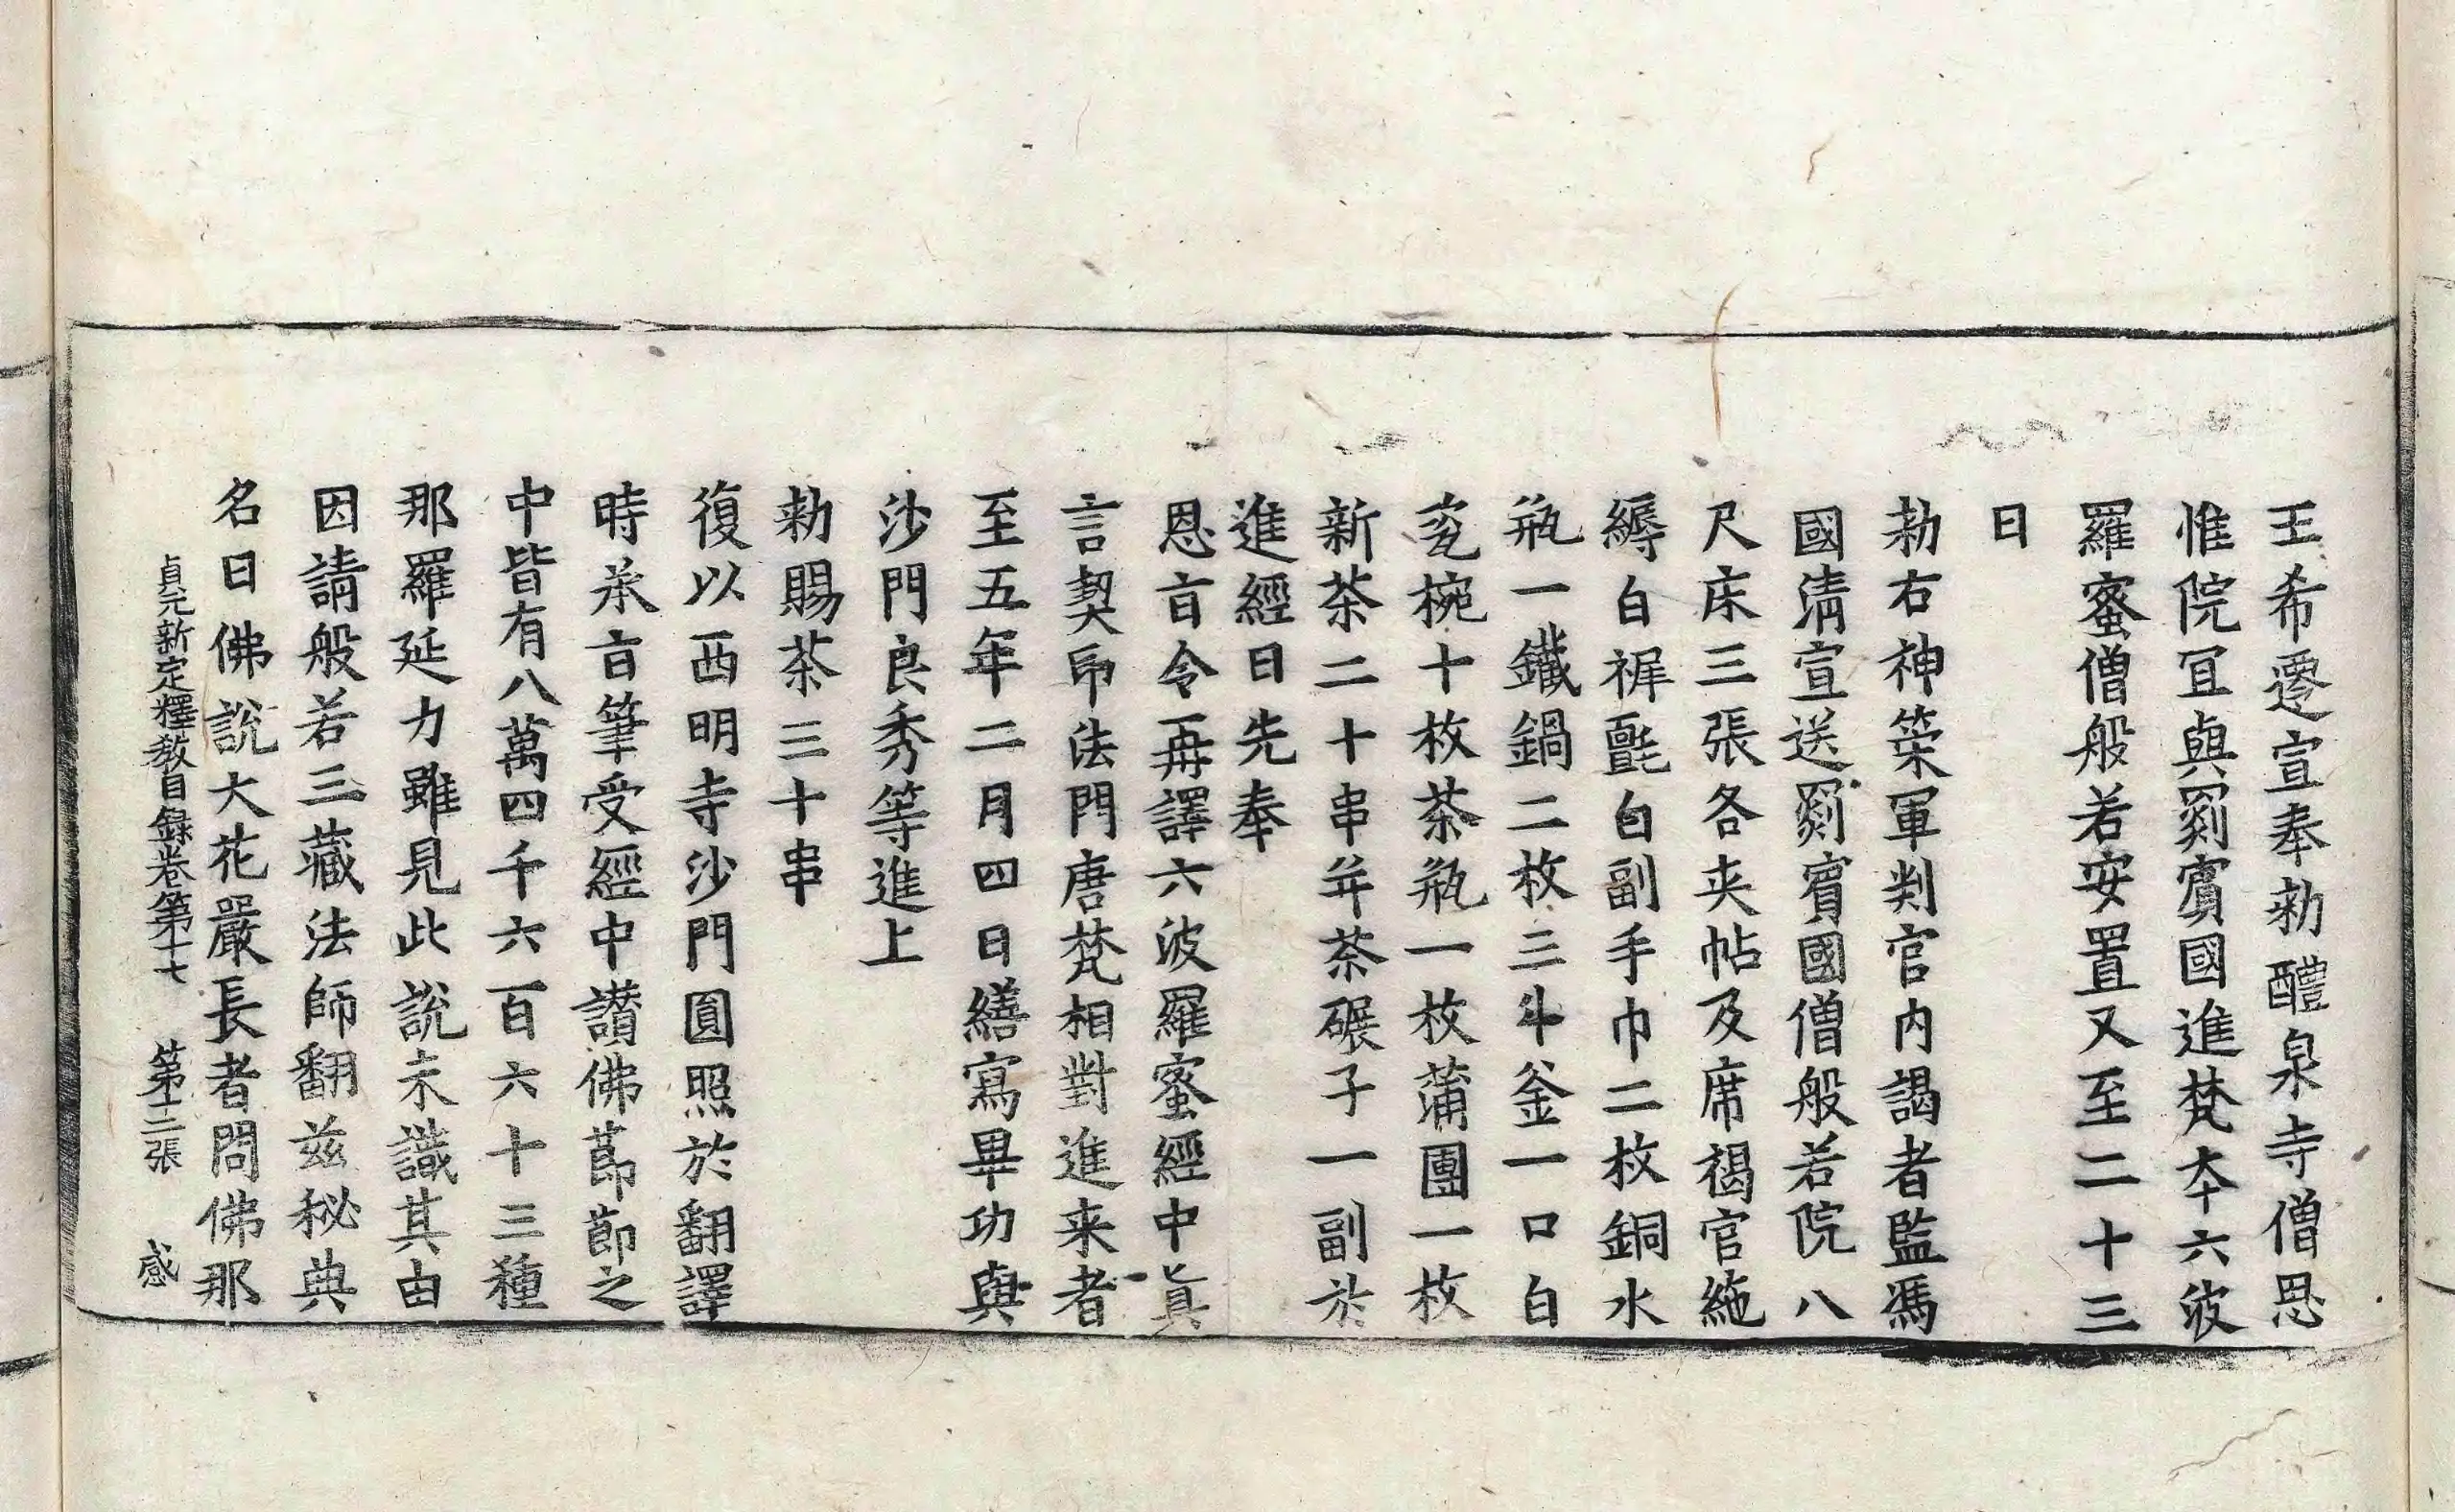 王希遷宣奉勑醴泉寺僧思
惟院冝與罽賓國進梵夲六波
羅蜜僧般若安置又至二十三
日
勑右神策軍判官內謁者監馮
國清宣送罽賓國僧般若院八
尺床三張各夾帖及席褐官絁
縟白褌氎白副手巾二枚銅水
瓶一鐵鍋二枚三斗釜一口白
瓷椀十枚茶瓶一枚蒲團一枚
新茶二十串幷茶碾子一副於
進經日先奉
恩㫖令再譯六波羅蜜經中眞
言契印法門唐梵相對進来者
至五年二月四日繕寫畢功與
沙門良秀等進上
勑賜茶三十串
復以西明寺沙門圓照於翻譯
時承㫖筆受經中讃佛莭莭之
中皆有八萬四千六百六十三種
那羅延力雖見此說未識其由
因請般若三藏法師翻玆秘典
名曰佛說大花嚴長者問佛那
貞元新定釋教目錄卷第十七 第十二張 感